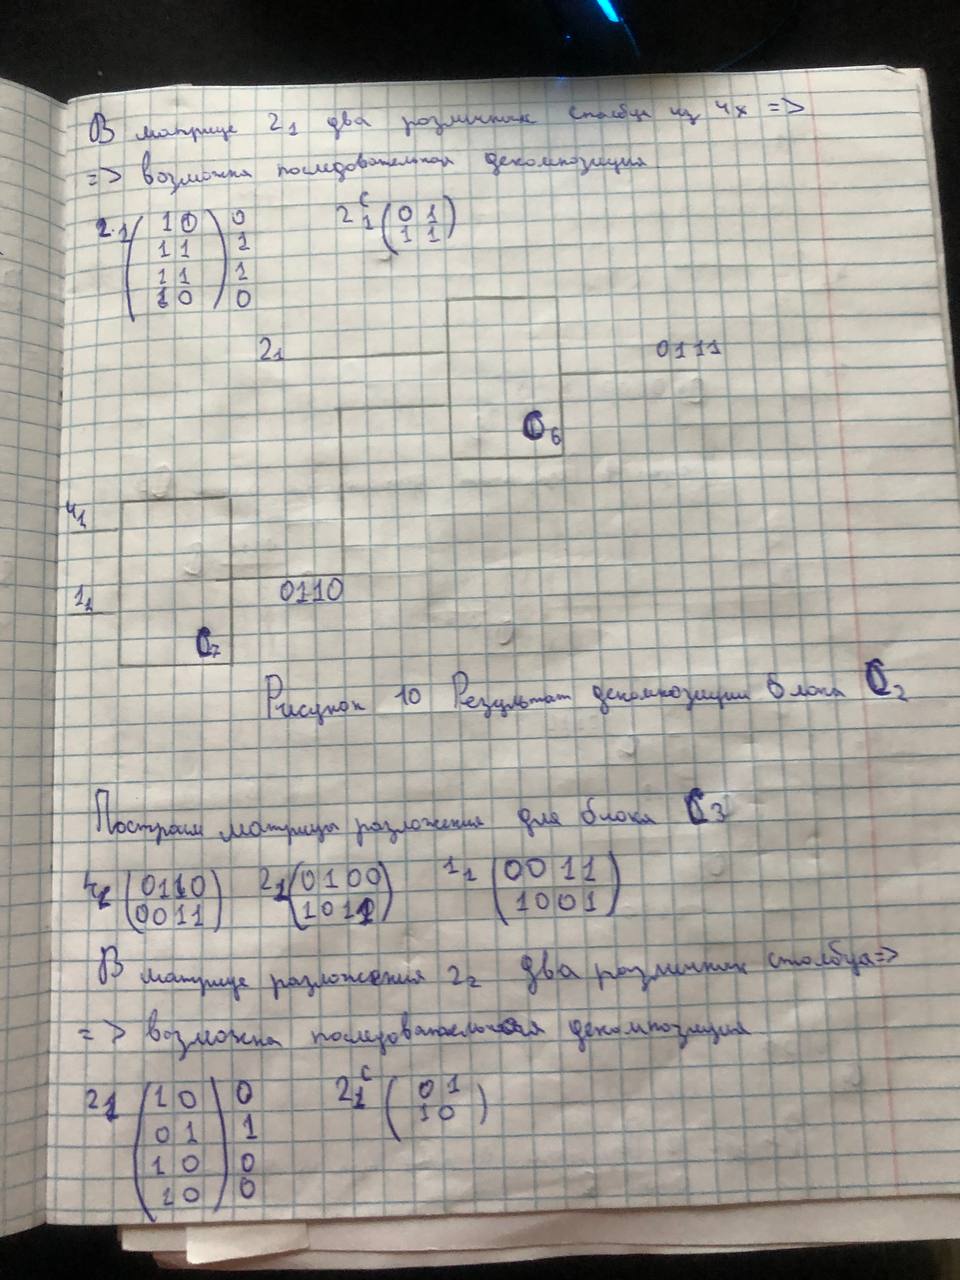 В матрице 2₁ два различных столбца из 4х =>
=> возможна последовательная декомпозиция
2.1 ( 1 0 ) 0 2₁ᶜ ( 0 1 )
1 1 1 1 1
1 1 1
1 0 0
2₁ 0111
C₆
4₁
1₁ 0110
C₇
Рисунок 10 Результат декомпозиции блока C₂
Построим матрицы разложения для блока C₃
4₁ (0110 2₁ (0100 1₁ (0011
0011) 1011) 1001)
В матрице разложения 2₂ два различных столбца =>
=> возможна последовательная декомпозиция
2₁ ( 1 0 ) 0 2₁ᶜ ( 0 1 )
0 1 1 1 0
1 0 0
1 0 0